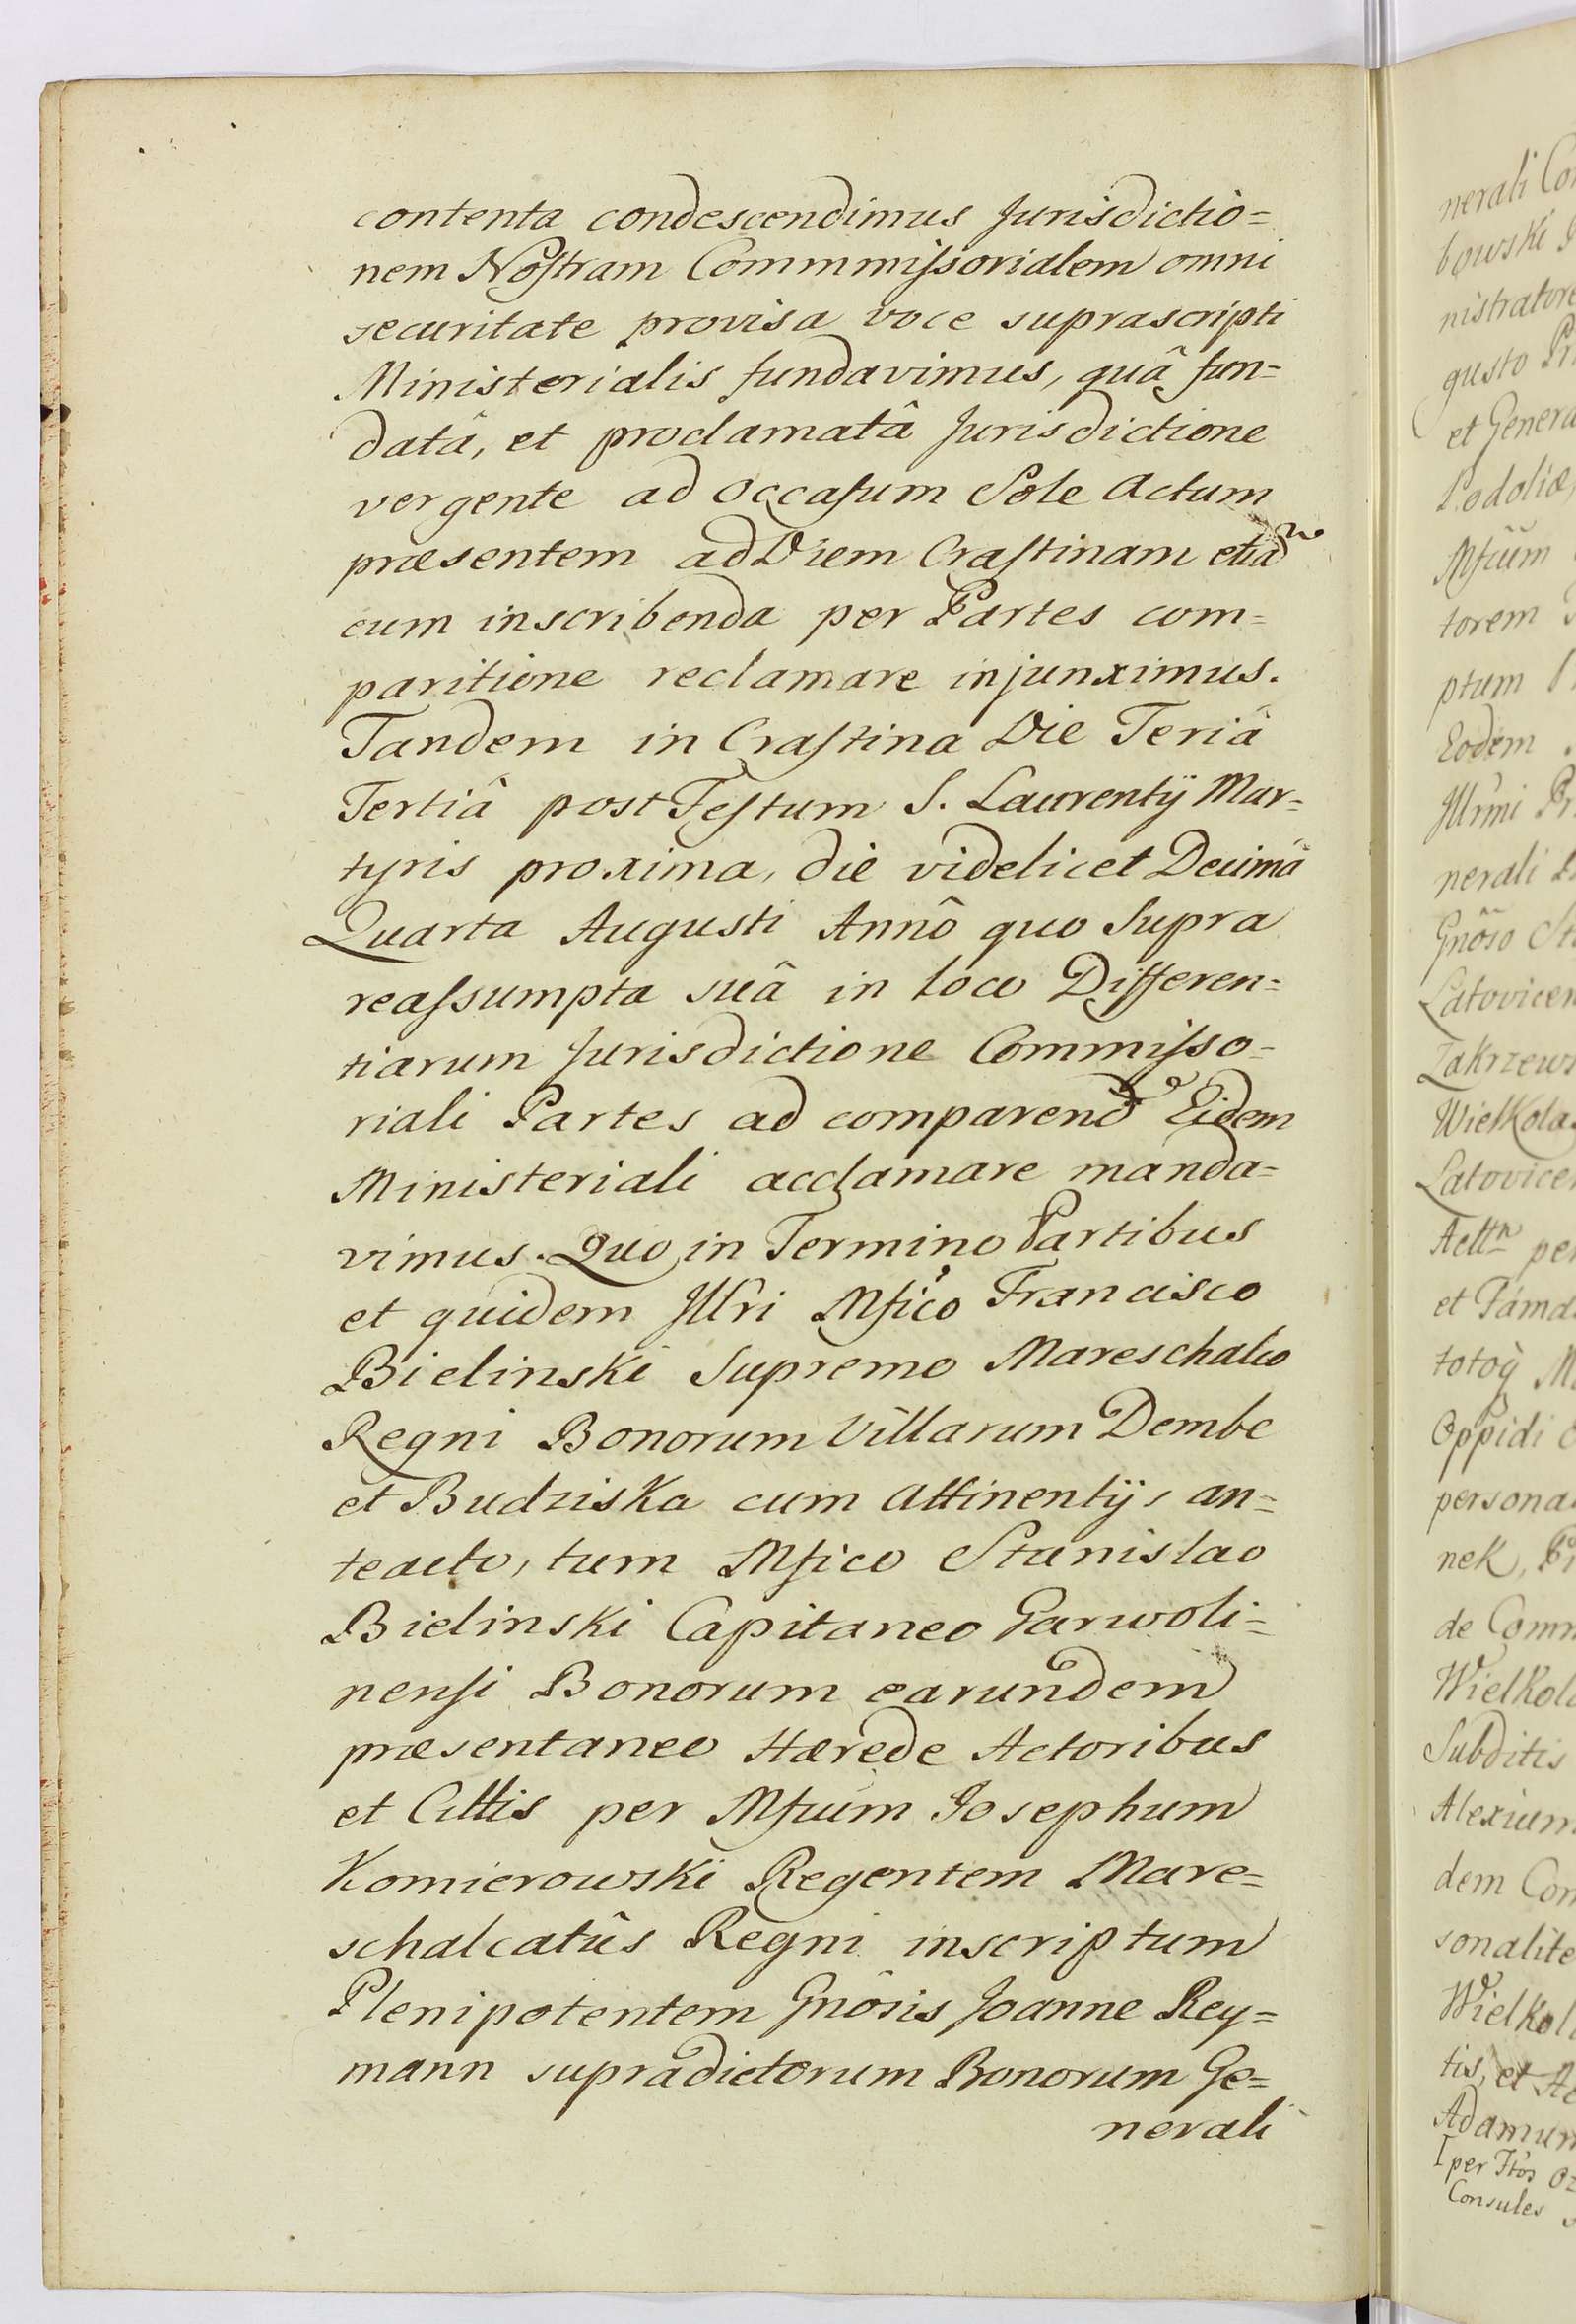 contenta condescendimus Jurisdictio=
nem Nostram Commmissorialem omni
securitate provisa voce suprascripti
Ministerialis fundavimus, quâ fun=
datâ, et proclamatâ Jurisdictione
vergente ad occasum Sole Actum
præsentem ad Diem Crastinam etiam
cum inscribenda per Partes com=
paritione reclamare injunximus.
Tandem in Crastina Die Feriâ
Tertiâ post Festum S. Laurentij Mar=
tyris proxima, die videlicet Decimâ
Quarta Augusti Annô quo Supra
reassumpta suâ in loco Differen=
tiarum Jurisdictione Commisso=
riali Partes ad comparend Eidem
Ministeriali acclamare manda=
vimus. Quo in Termino Partibus
et quidem Jllri Mfico Francisco
Bielinski Supremo Mareschalco
Regni Bonorum Villarum Dembe
et Budziska cum attinentijs an=
teacto, tum Mfico Stanislao
Bielinski Capitaneo Garwoli=
nensi Bonorum earundem
præsentaneo Hærede Actoribus
et Cittis per Mfcum Josephum
Komierowski Regentem Mare=
schalcatûs Regni inscriptum
Plenipotentem Gnôsis Joanne Rey=
mann supradictorum Bonorum Ge=
nerali
nerali
bowski
nistratore
gusto
et Genera
Podoliæ,
Mfcum
torem
ptum
Eodem
Jllrmi
nerali
Gnôso
Latovicen
Zakrzews
Wielkola
Latovice
per
et Famat
totoq
Oppidi
persona
nek,
de Comm
Wielkola
Subditis
Alexium
dem Con
sonalite
Wielkol
tis, et
Adamum
per
Consules